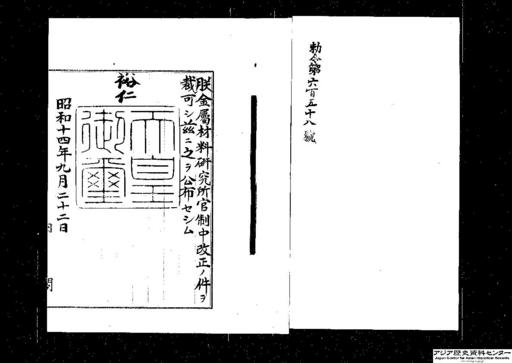 勅令第六百五十八號
朕金屬材料研究所官制中改正ノ件ヲ
裁可シ茲ニ之ヲ公布セシム
裕仁
天皇
御璽
昭和十四年九月二十二日
内閣
アジア歴史資料センター
Japan Center for Asian Historical Records